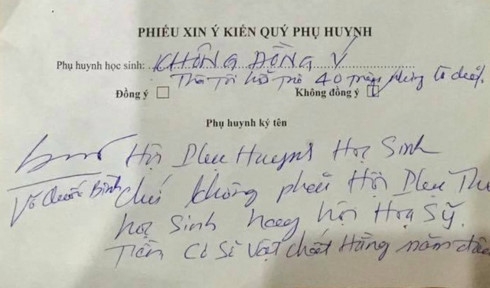 PHIẾU XIN Ý KIẾN QUÝ PHỤ HUYNH
Phụ huynh học sinh: KHÔNG ĐỒNG Ý
Tài Trợ hỗ trợ 40 triệu
Đồng ý Không đồng ý
Phụ huynh ký tên
Hội Phụ Huynh Học Sinh
Võ Quốc Bình chứ không phải Hội Phụ Thu
học Sinh hay hội Hoạ Sỹ.
Tiền Cơ Sở Vật chất Hằng năm đâu